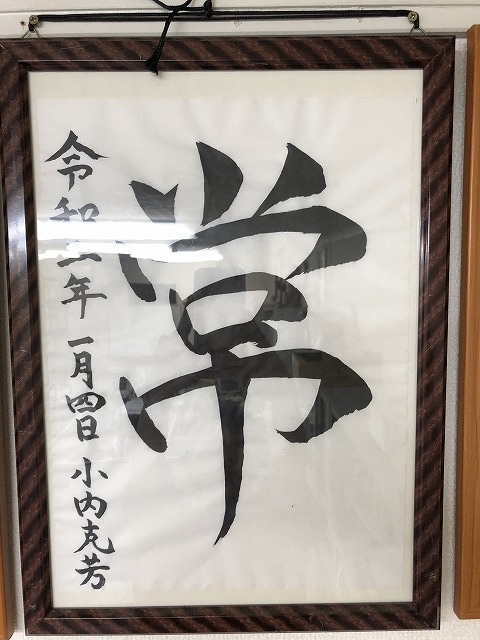 常
令和二年 一月四日 小内克芳